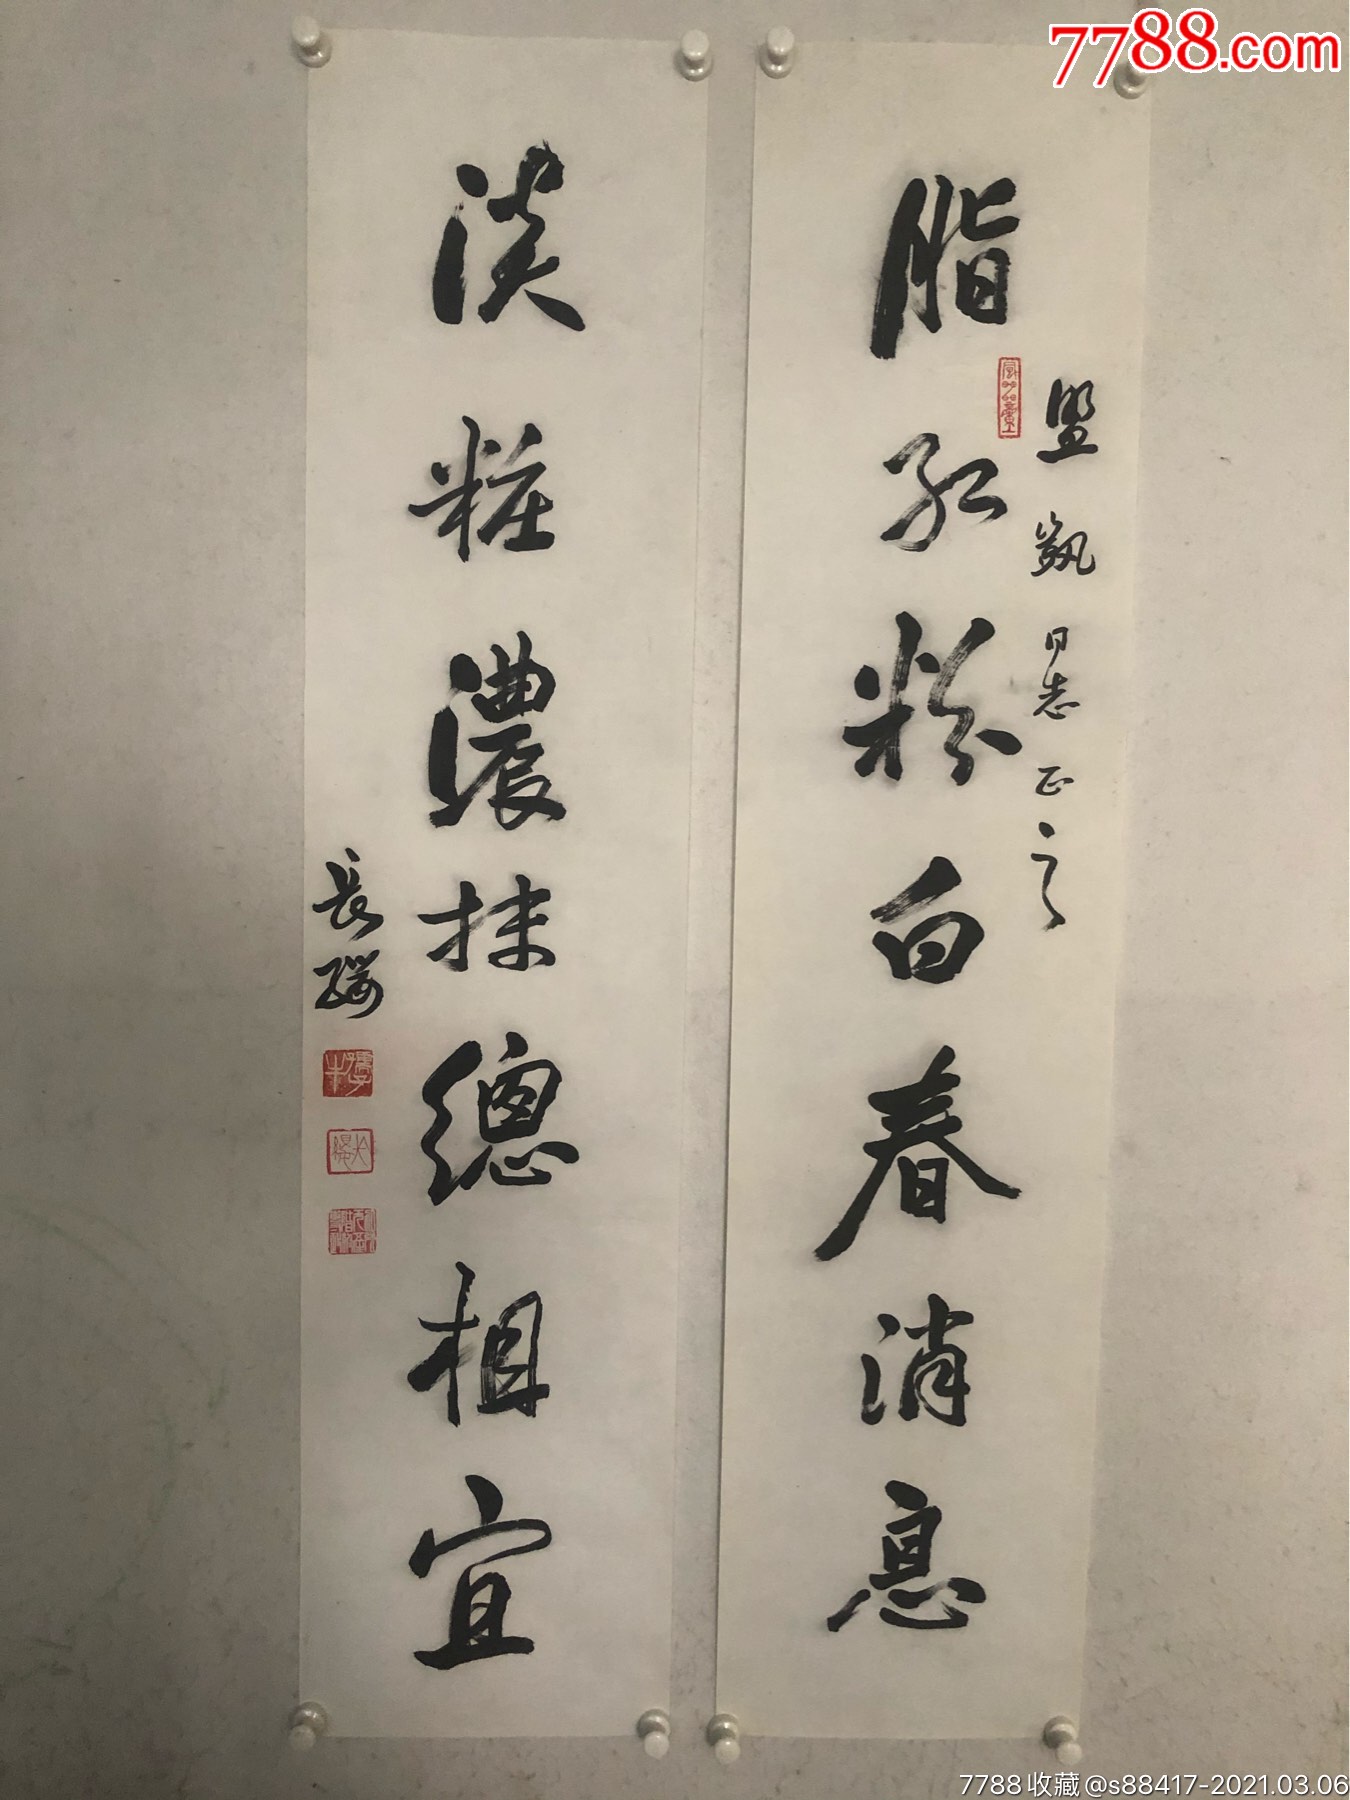 7788.com
脂红粉白春消息
盟凱同志正之
淡粧濃抹總相宜
長纓
7788收藏@s88417-2021.03.06